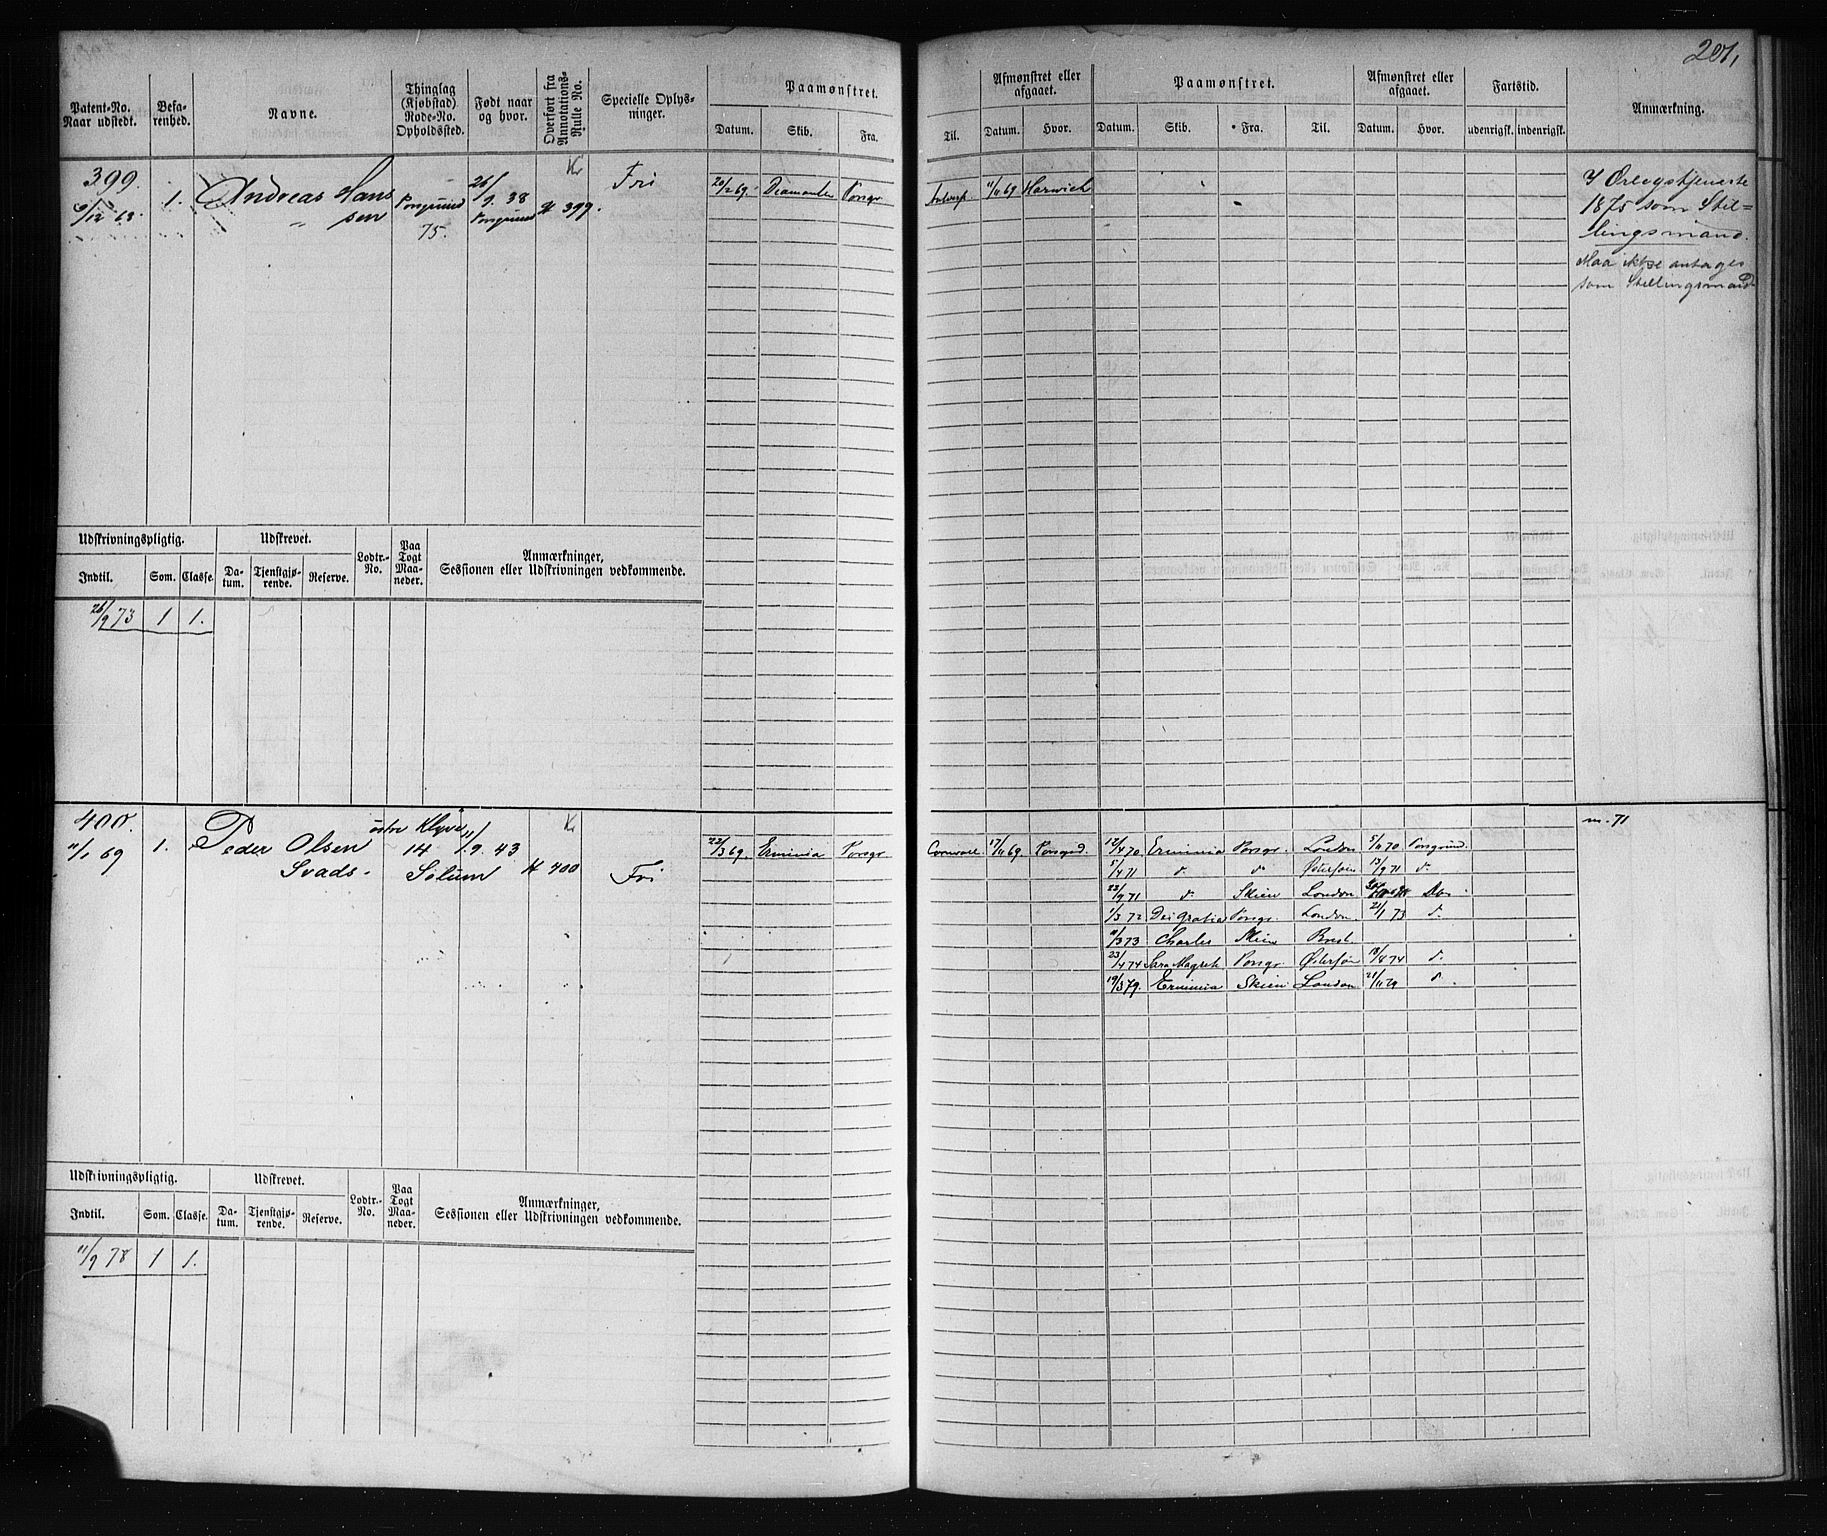 201,
Patent-No. Naar udstedt. | Befarenhed. | Navne. | Thinglag (Kjøbstad) Rode-No. Opholdssted. | Født naar og hvor. | Overført fra Annotations-Rulle No. | Specielle Oplysninger. | Paamønstret. Datum. Skib. Fra. Til. | Afmønstret eller afgaaet. Datum. Hvor. | Paamønstret. Datum. Skib. Fra. Til. | Afmønstret eller afgaaet. Datum. Hvor. | Fartstid. udenrigsk. indenrigsk. | Anmærkning.
399. 1. Andreas Hans Porsgrund 26/9. 38 Kr Fri 20/2 69. Diamanten Porsgr. Antwerp. 11/11 69 Harwich I Orlogstjeneste
9/12 68. " sen 75. Porsgrund # 399. 1875 som Stil=
lingsmand.
Maa ikke antages
som Stillingsmand
Udskrivningspligtig. Udskrevet. Lodtr.-No. Paa Togt Maaneder. Anmærkninger, Sessionen eller Udskrivningen vedkommende.
Indtil. Som. Classe. Datum. Tjenstgjørende. Reserve.
26/9 73 1 1.
400. 1. Peder Olsen østre Klyve 11/9. 43 Kr 22/3 69. Erminia Porsgr. Cornwall 17/11 69. Porsgrd. 12/4 70 Erminia Porsgr. London 5/11 70 Porsgrund m. 71
11/1 69 Svads. 14 Solum # 400 Fri
5/4 71 d. d. Østersøen 13/9 71 d.
23/9 71 d. Skien London Do.
1/3 72 Dei Gratia Porsgr. London 21/1 73 d.
11/3 73 Charles Skien Brest
23/4 74 Sara Magreth Porsgr. Østersøen 18/8 74 d.
19/3 79. Erminia Skien London 21/11 79 d.
Udskrivningspligtig. Udskrevet. Lodtr.-No. Paa Togt Maaneder. Anmærkninger, Sessionen eller Udskrivningen vedkommende.
Indtil. Som. Classe. Datum. Tjenstgjørende. Reserve.
11/9 78 1 1.